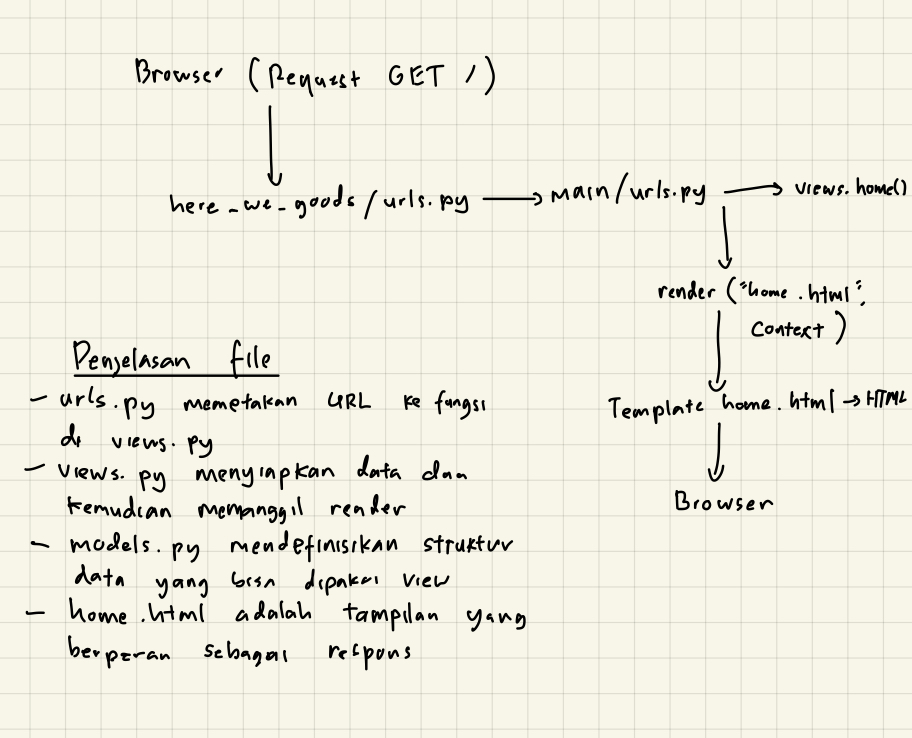 Browser (Request GET /)
here_we_goods/urls.py → main/urls.py → views.home()
render ("home.html",
Context)
Template home.html → HTML
Browser
Penjelasan file
- urls.py memetakan URL ke fungsi
di views.py
- views.py menyiapkan data dan
kemudian memanggil render
- models.py mendefinisikan struktur
data yang bisa dipakai view
- home.html adalah tampilan yang
berperan sebagai respons